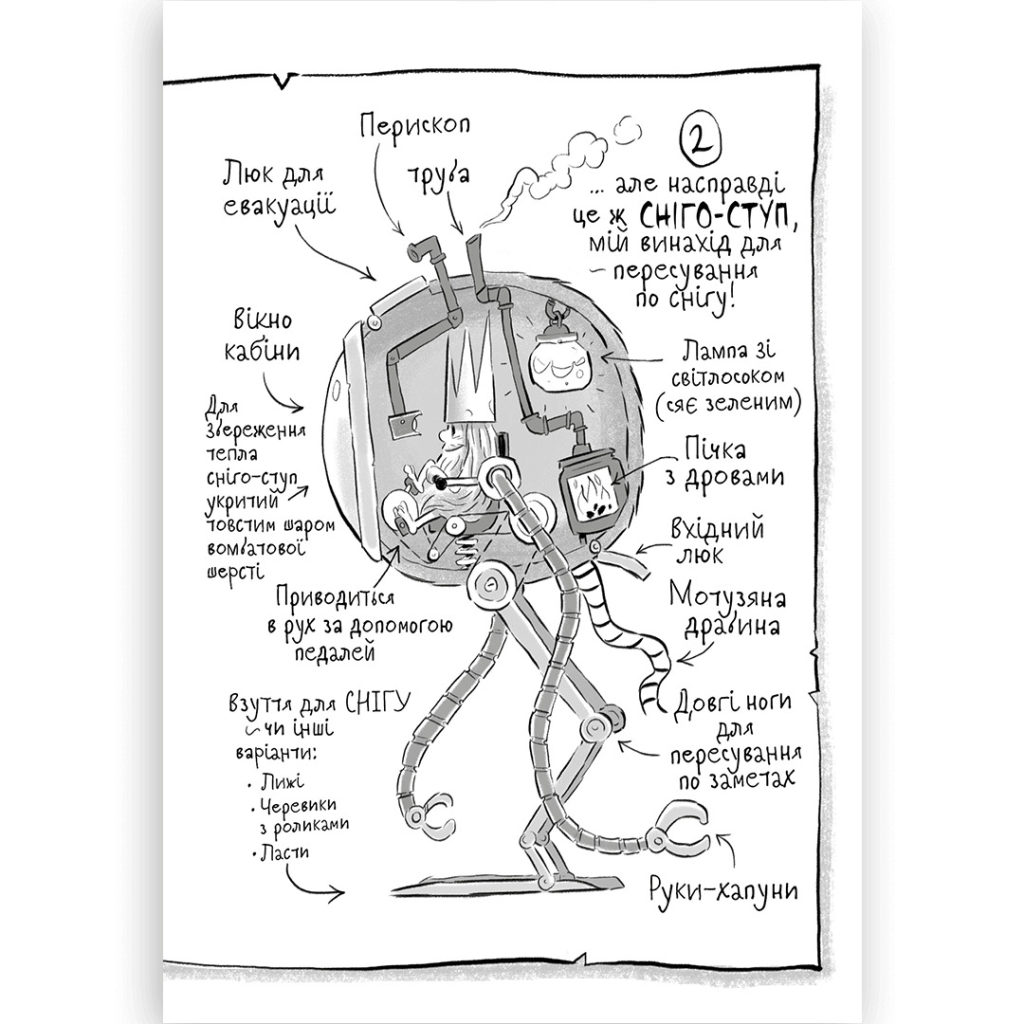 Перископ
труба
Люк для
евакуації
2
... але насправді
це ж СНІГО-СТУП,
мій винахід для
~ пересування
по снігу!
Вікно
кабіни
Лампа зі
світлосоком
(сяє зеленим)
Для
збереження
тепла
сніго-ступ
укритий
товстим шаром
вомбатової
шерсті
Пічка
з дровами
Вхідний
люк
Приводиться
в рух за допомогою
педалей
Мотузяна
драбина
Взуття для СНІГУ
~ чи інші
варіанти:
• Лижі
• Черевики
з роликами
• Ласти
Довгі ноги
для
пересування
по заметах
Руки-хапуни